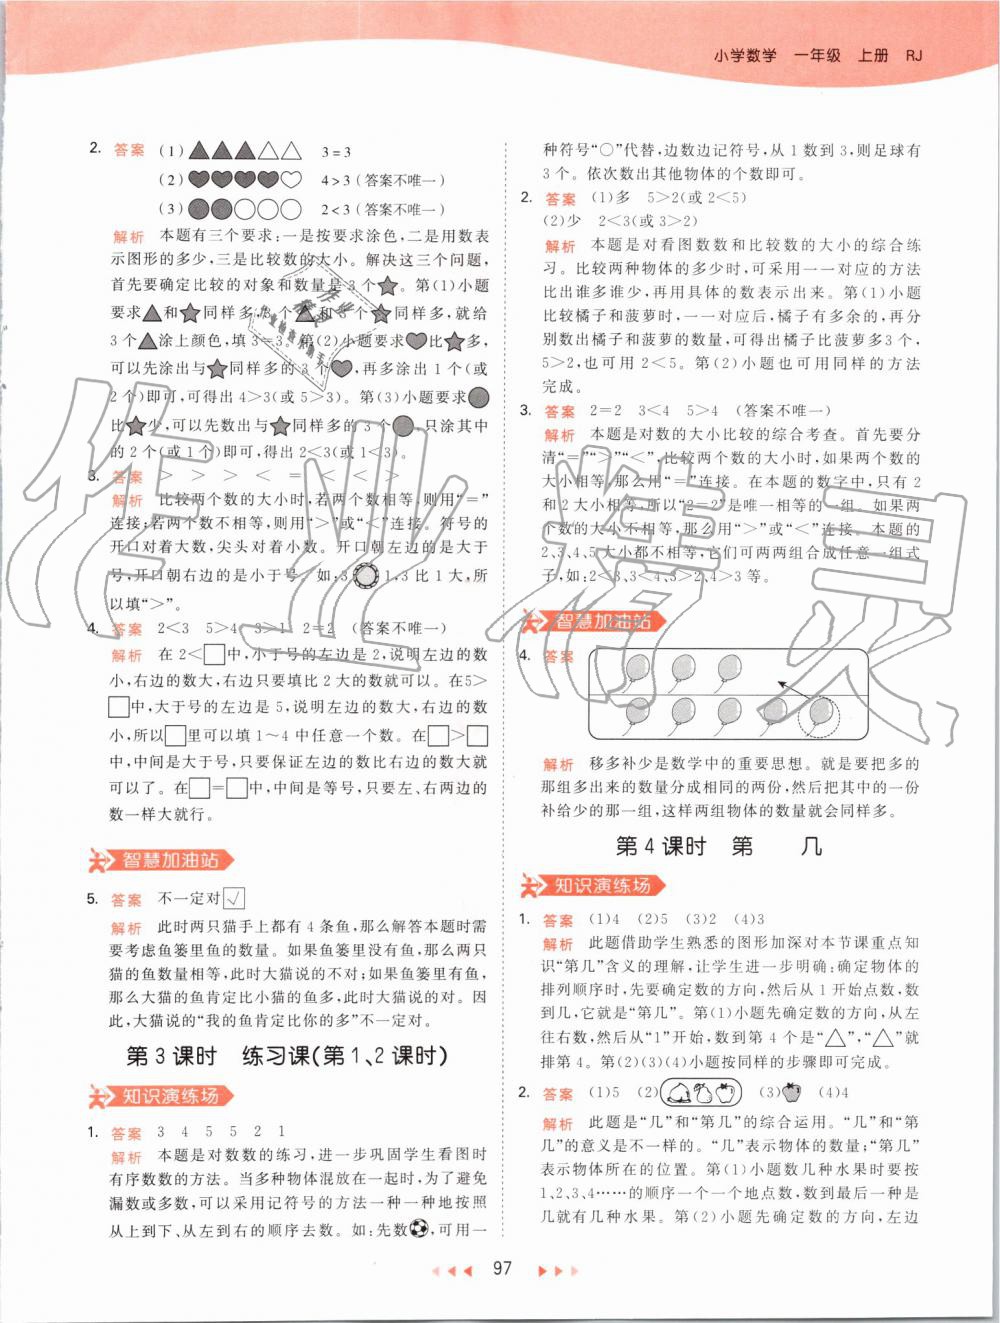 小学数学 一年级 上册 RJ
2. 答案 (1)▲▲▲△△ 3=3
(2)♥♥♥♥♡ 4>3(答案不唯一)
(3)●●○○○ 2<3(答案不唯一)
解析 本题有三个要求:一是按要求涂色,二是用数表
示图形的多少,三是比较数的大小。解决这三个问题,
首先要确定比较的对象和数量是3个★。第(1)小题
要求▲和★同样多,3个▲和3个★同样多,就给
3个▲涂上颜色,填3=3。第(2)小题要求♥比★多,
可以先涂出与★同样多的3个♥,再多涂出1个(或
2个)即可,可得出4>3(或5>3)。第(3)小题要求●
比★少,可以先数出与★同样多的3个●,只涂其中
的2个(或1个)即可,得出2<3(或1<3)。
3. 答案 > > > < = < < > >
解析 比较两个数的大小时,若两个数相等,则用“=”
连接;若两个数不相等,则用“>”或“<”连接。符号的
开口对着大数,尖头对着小数。开口朝左边的是大于
号,开口朝右边的是小于号。如:3○1,3比1大,所
以填“>”。
4. 答案 2<3 5>4 3>1 2=2 (答案不唯一)
解析 在2<□中,小于号的左边是2,说明左边的数
小,右边的数大,右边只要填比2大的数就可以。在5>
□中,大于号的左边是5,说明左边的数大,右边的数
小,所以□里可以填1~4中任意一个数。在□>□
中,中间是大于号,只要保证左边的数比右边的数大就
可以了。在□=□中,中间是等号,只要左、右两边的
数一样大就行。
智慧加油站
5. 答案 不一定对☑
解析 此时两只猫手上都有4条鱼,那么解答本题时需
要考虑鱼篓里鱼的数量。如果鱼篓里没有鱼,那么两只
猫的鱼数量相等,此时大猫说的不对;如果鱼篓里有鱼,
那么大猫的鱼肯定比小猫的鱼多,此时大猫说的对。因
此,大猫说的“我的鱼肯定比你的多”不一定对。
第3课时 练习课(第1、2课时)
知识演练场
1. 答案 3 4 5 5 2 1
解析 本题是对数数的练习,进一步巩固学生看图时
有序数数的方法。当多种物体混放在一起时,为了避免
漏数或多数,可以采用记符号的方法一种一种地按照
从上到下、从左到右的顺序去数。如:先数⚽,可用一
种符号“○”代替,边数边记符号,从1数到3,则足球有
3个。依次数出其他物体的个数即可。
2. 答案 (1)多 5>2(或2<5)
(2)少 2<3(或3>2)
解析 本题是对看图数数和比较数的大小的综合练
习。比较两种物体的多少时,可采用一一对应的方法
比出谁多谁少,再用具体的数表示出来。第(1)小题
比较橘子和菠萝时,一一对应后,橘子有多余的,再分
别数出橘子和菠萝的数量,可得出橘子比菠萝多3个,
5>2,也可用2<5。第(2)小题也可用同样的方法
完成。
3. 答案 2=2 3<4 5>4 (答案不唯一)
解析 本题是对数的大小比较的综合考查。首先要分
清“=”“>”“<”,比较两个数的大小时,如果两个数的
大小相等,那么用“=”连接。在本题的数字中,只有2
和2大小相等,所以“2=2”是唯一相等的一组。如果两
个数的大小不相等,那么用“>”或“<”连接。本题的
2,3,4,5大小都不相等,它们可两两组合成任意一组式
子,如:2<3、3<4、3>2、4>3等。
智慧加油站
4. 答案
解析 移多补少是数学中的重要思想。就是要把多的
那组多出来的数量分成相同的两份,然后把其中的一份
补给少的那一组,这样两组物体的数量就会同样多。
第4课时 第 几
知识演练场
1. 答案 (1)4 (2)5 (3)2 (4)3
解析 此题借助学生熟悉的图形加深对本节课重点知
识“第几”含义的理解,让学生进一步明确:确定物体的
排列顺序时,先要确定数的方向,然后从1开始点数,数
到几,它就是“第几”。第(1)小题先确定数的方向,从左
往右数,然后从“1”开始,数到第4个是“△”,“△”就
排第4。第(2)(3)(4)小题按同样的步骤即可完成。
2. 答案 (1)5 (2) (3) (4)4
解析 此题是“几”和“第几”的综合运用。“几”和“第
几”的意义是不一样的。“几”表示物体的数量;“第几”
表示物体所在的位置。第(1)小题数几种水果时要按
1、2、3、4……的顺序一个一个地点数,数到最后一个是
几就有几种水果。第(2)小题先确定数的方向,左边
97